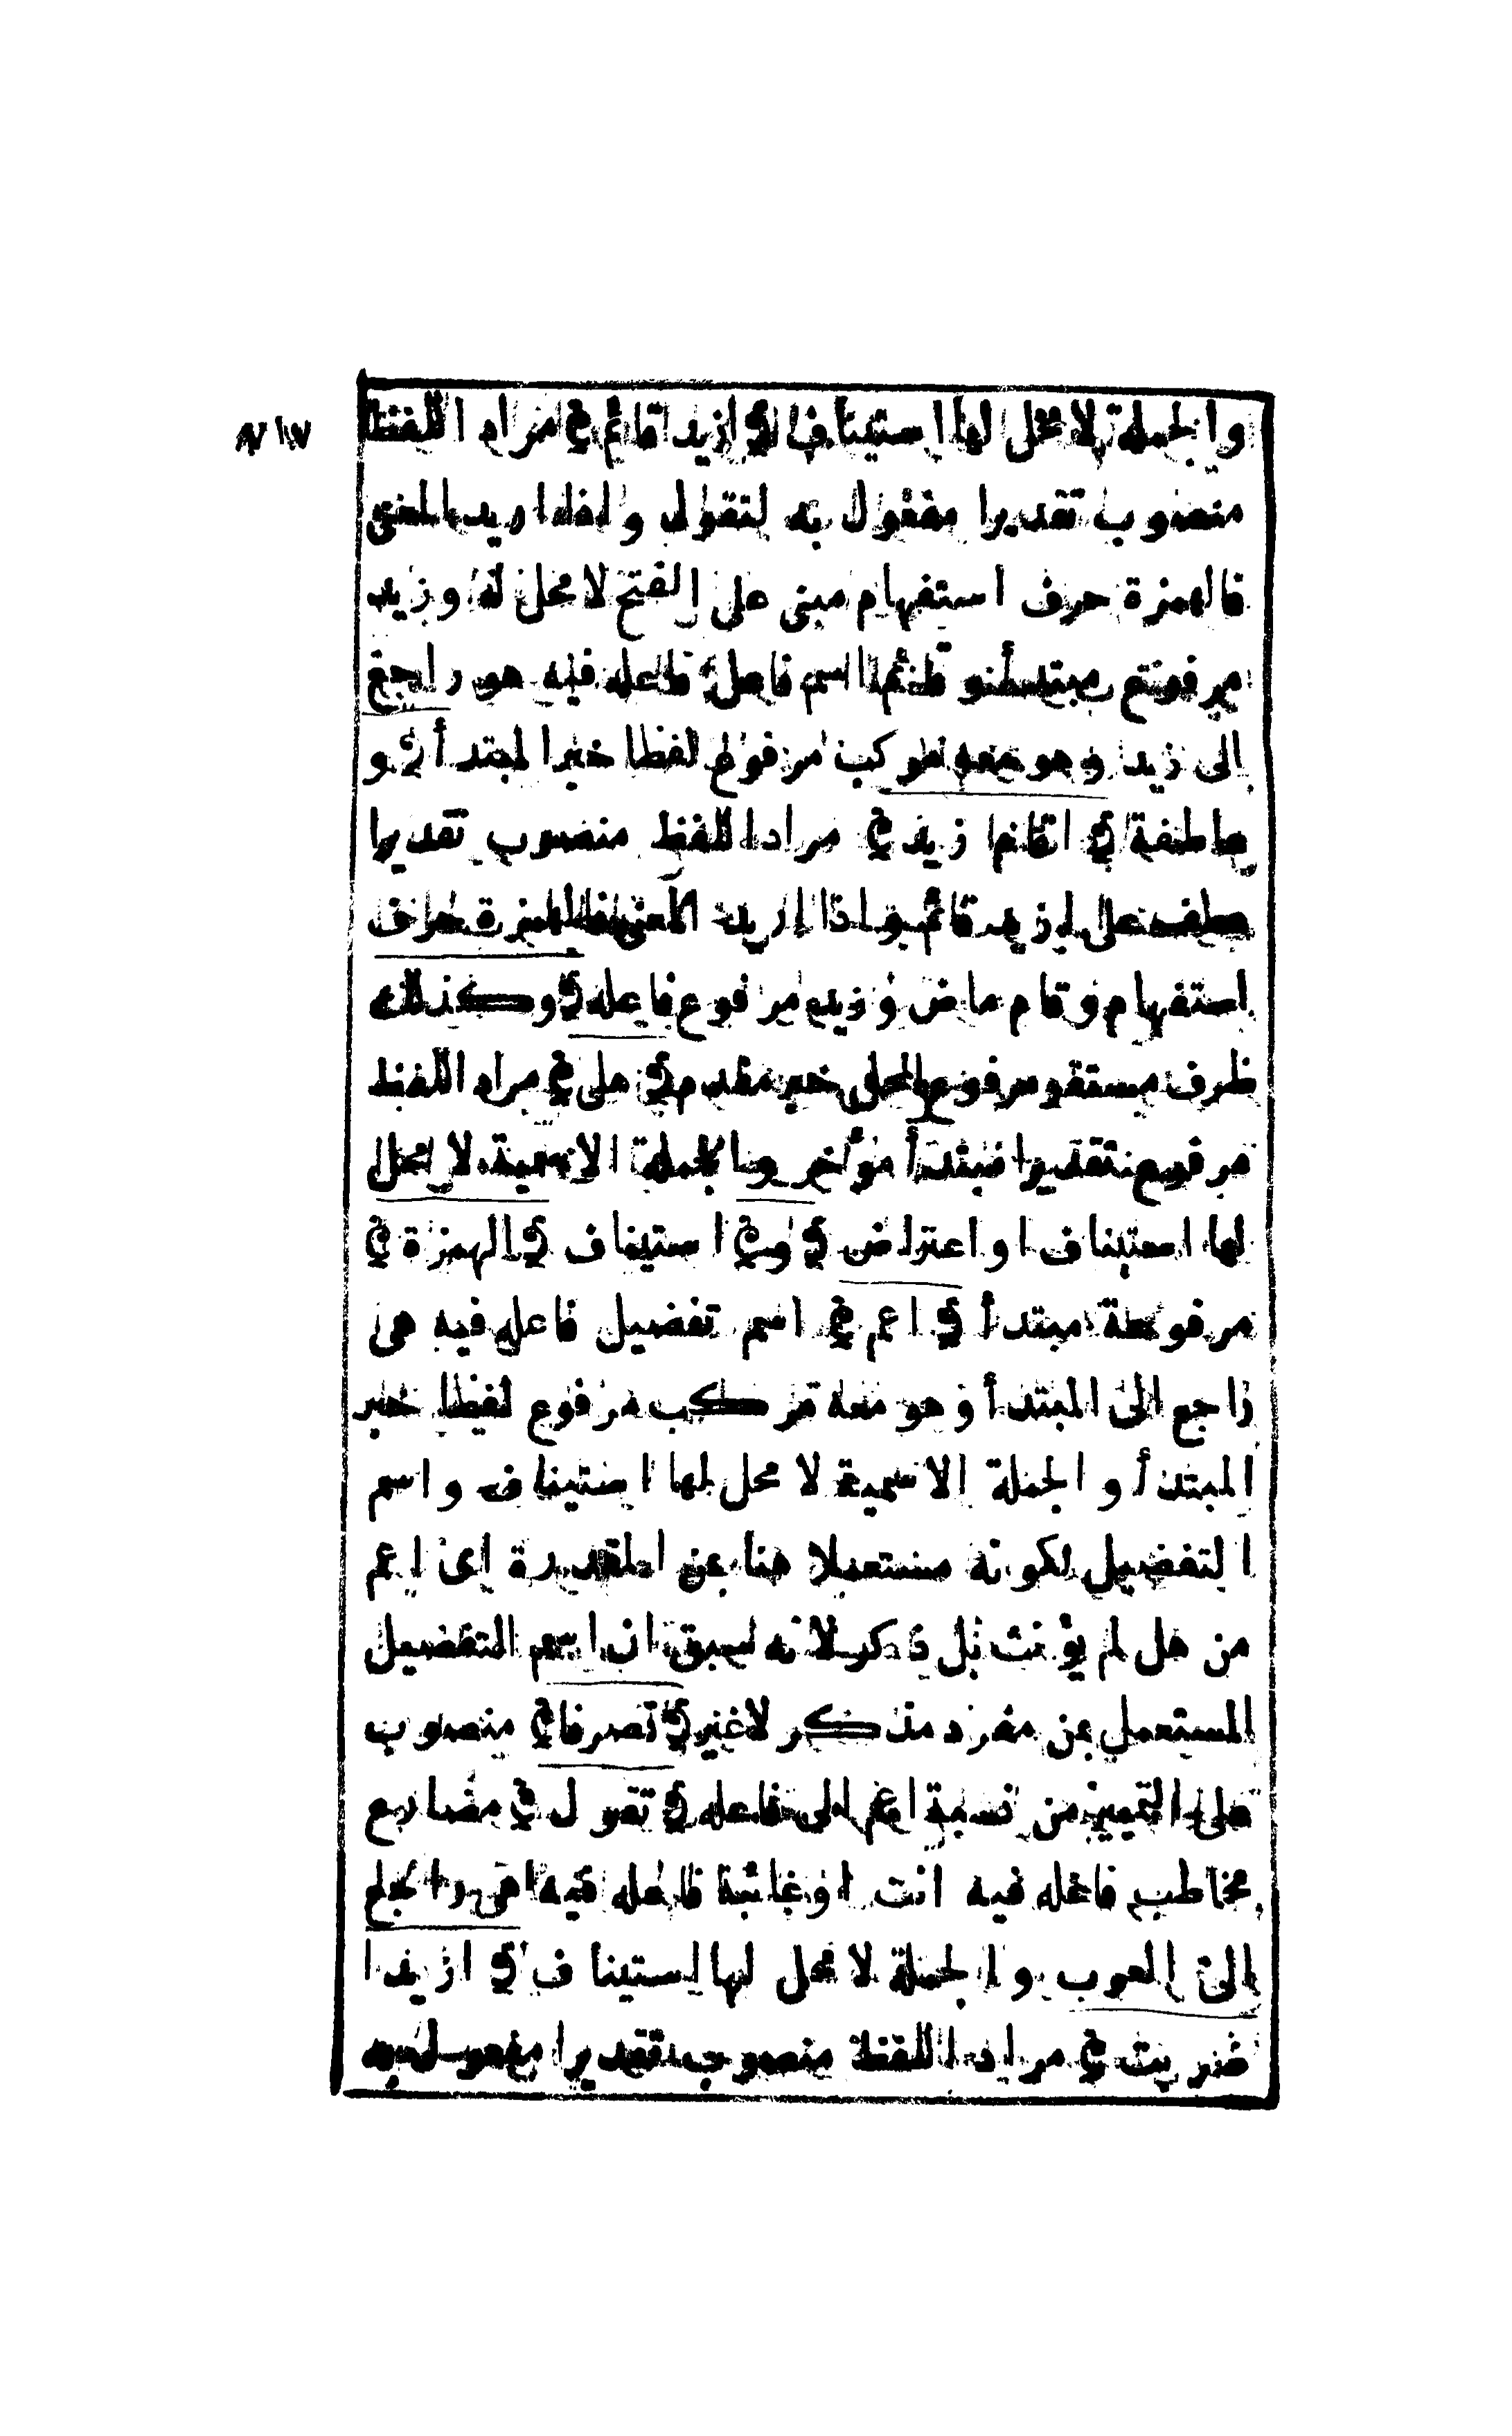 والجملة لا محل لها استيناف ﴿ ازيد قائم ﴾ مراد اللفظ
منصوب تقديرا مفعول به لتقول واذا اريد المعنى
فالهمزة حرف استفهام مبنى على الفتح لا محل له وزيد
مرفوع مبتدأ وقائم اسم فاعل فاعله فيه هو راجع
الى زيد وهو معه مركب مرفوع لفظا خبر المبتدأ ﴿ و
عاطفة ﴿ اقام زيد ﴾ مراد اللفظ منصوب تقديرا
عطف على ازيد قائم واذا اريد المعنى فالهمزة حرف
استفهام وقام ماض وزيد مرفوع فاعله ﴿ وكذلك
ظرف مستقر مرفوع المحل خبر مقدم ﴿ هل ﴾ مراد اللفظ
مرفوع تقديرا مبتدأ مؤخر والجملة الاسمية لا محل
لها استيناف او اعتراض ﴿ و ﴾ استيناف ﴿ الهمزة ﴾
مرفوعة مبتدأ ﴿ اعم ﴾ اسم تفضيل فاعله فيه هى
راجع الى المبتدأ وهو معه مركب مرفوع لفظا خبر
المبتدأ والجملة الاسمية لا محل لها استيناف واسم
التفضيل لكونه مستعملا هنا بمن المقدرة اى اعم
من هل لم يؤنث بل ذكر لانه سبق ان اسم التفضيل
المستعمل بمن مفرد مذكر لا غير ﴿ تصرفا ﴾ منصوب
على التمييز من نسبة اعم الى فاعله ﴿ تقول ﴾ مضارع
مخاطب فاعله فيه انت او غائبة فاعله فيه هى راجع
الى العرب والجملة لا محل لها استيناف ﴿ ازيدا
ضربت ﴾ مراد اللفظ منصوب تقديرا مفعول به